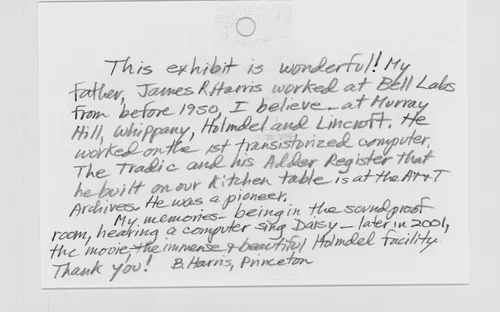 This exhibit is wonderful! My
Father, James R. Harris worked at Bell Labs
from before 1950, I believe - at Murray
Hill, Whippany, Holmdel and Lincroft. He
worked on the 1st transistorized computer,
The Tradic and his Adder Register that
he built on our kitchen table is at the AT&T
Archives. He was a pioneer.
My memories - being in the soundproof
room, hearing a computer sing Daisy - later in 2001,
the movie - the immense & beautiful Holmdel facility.
Thank you! B. Harris, Princeton